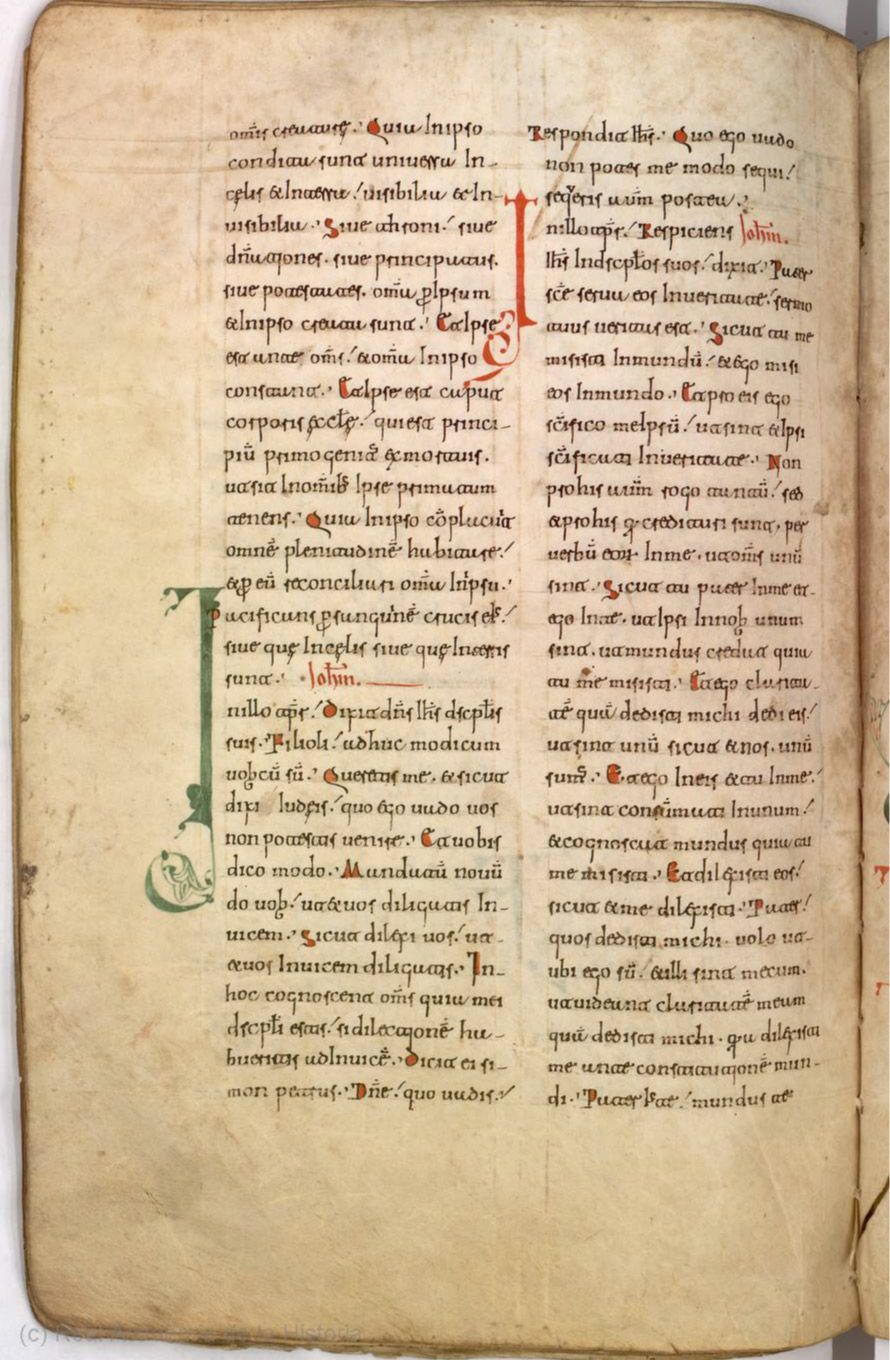 om̅is creaturę. Quia In ipso
condita sunt uniuersa In
cęlis & In terra / uisibilia & In
uisibilia. Siue throni / siue
dn̅ationes. siue principatus.
siue potestates. om̅a ꝑ Ipsum
& In ipso creata sunt. Et Ipse
est ante om̅s / & om̅a In ipso
constant. Et Ipse est caput
corporis ęccl̅ę / qui est princi
piu̅ primogenit̅ ex mortuis.
ut sit In om̅ib; Ipse primatum
tenens. Quia In ipso co̅placuit
omne̅ plenitudine̅ habitare /
& ꝑ eu̅ reconciliari om̅a In ipsu.
Pacificans ꝑ sanguine̅ crucis ei; /
siue quę In cęlis siue quę In terris
sunt. Ioh̅m.
In illo tp̅r / Dixit dn̅s Ih̅s dscpl̅is
suis. Filioli / adhuc modicum
uobcu̅ su̅. Queretis me. & sicut
dixi Iudęis / quo ego uado uos
non potestis uenire. Et uobis
dico modo. Mandatu̅ nouu̅
do uob / ut & uos diligatis In
uicem. Sicut dilexi uos / ut
& uos Inuicem diligatis. In
hoc cognoscent om̅s quia mei
dscpl̅i estis / si dilectione̅ ha
bueritis ad Inuice̅. Dicit ei si
mon petrus. Dn̅e / quo uadis /
Respondit Ih̅s. Quo ego uado
non potes me modo sequi /
seq̅eris aut̅m postea.
In illo tp̅r / Respiciens Ioh̅m.
Ih̅s In dscpl̅os suos / dixit. Pater
sc̅e serua eos In ueritate / sermo
tuus ueritas est. Sicut tu me
misisti In mundu̅ / & ego misi
eos In mundo. Et pro eis ego
sc̅ifico me Ipsu̅ / ut sint & Ipsi
sc̅ificati In ueritate. Non
pro his aut̅m rogo tantu̅ / sed
& pro his q̅ credituri sunt. per
uerbu̅ eor̅ In me. ut om̅s unu̅
sint. Sicut tu pater In me et
ego In te. ut Ipsi In nob unum
sint. ut mundus credat quia
tu me misisti. Et ego clarita
te̅ qua̅ dedisti michi dedi eis /
ut sint unu̅ sicut & nos. unu̅
sum̅. Et ego In eis & tu In me /
ut sint consumati In unum /
& cognoscat mundus quia tu
me misisti. Et dilexisti eos /
sicut & me dilexisti. Pater /
quos dedisti michi. uolo ut
ubi ego su̅. & illi sint mecum.
ut uideant claritate̅ meum
qua̅ dedisti michi. q̅a dilexisti
me ante constitutione̅ mun
di. Pater Iste / mundus te